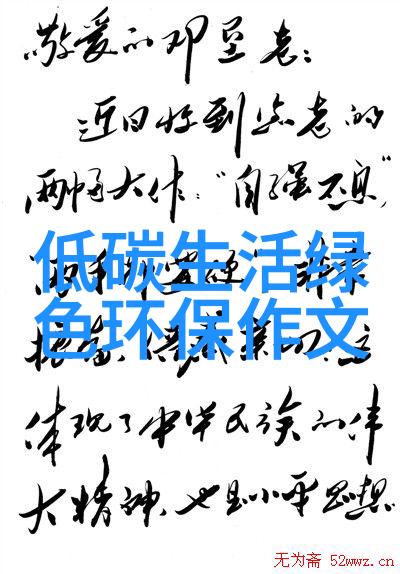 敬爱的邓垦老：
近日收到您老的
两幅大作：“自强不息”
低碳生活绿
色环保作文
体现了中华民族的伟
大精神，也是小平思想
无为斋 52wwz.cn